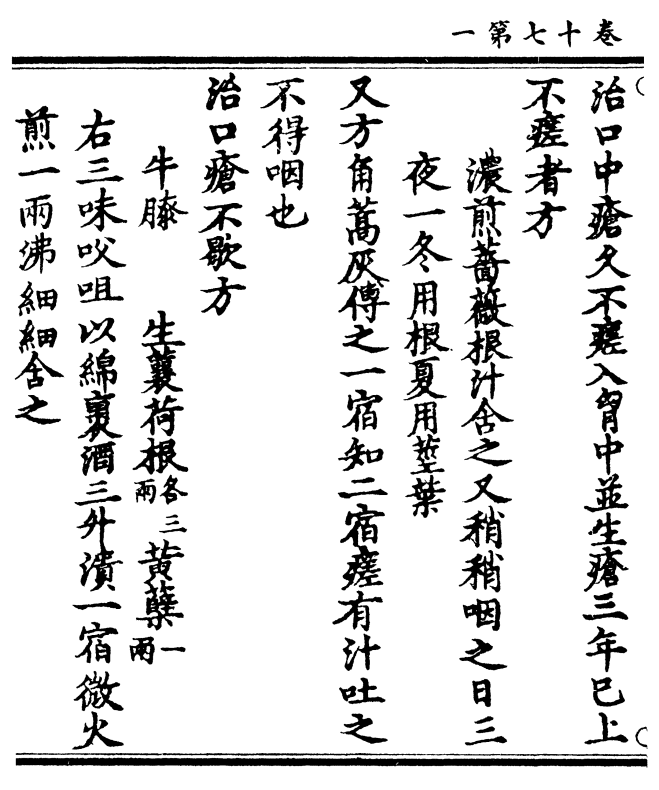 卷十七第一
治口中瘡久不瘥入胷中並生瘡三年已上
不瘥者方
濃煎薔薇根汁含之又稍稍咽之日三
夜一冬用根夏用莖葉
又方角蒿灰傅之一宿知二宿瘥有汁吐之
不得咽也
治口瘡不歇方
牛膝 生蘘荷根各三兩 黃蘗一兩
右三味㕮咀以綿裹酒三升漬一宿微火
煎一兩沸細細含之